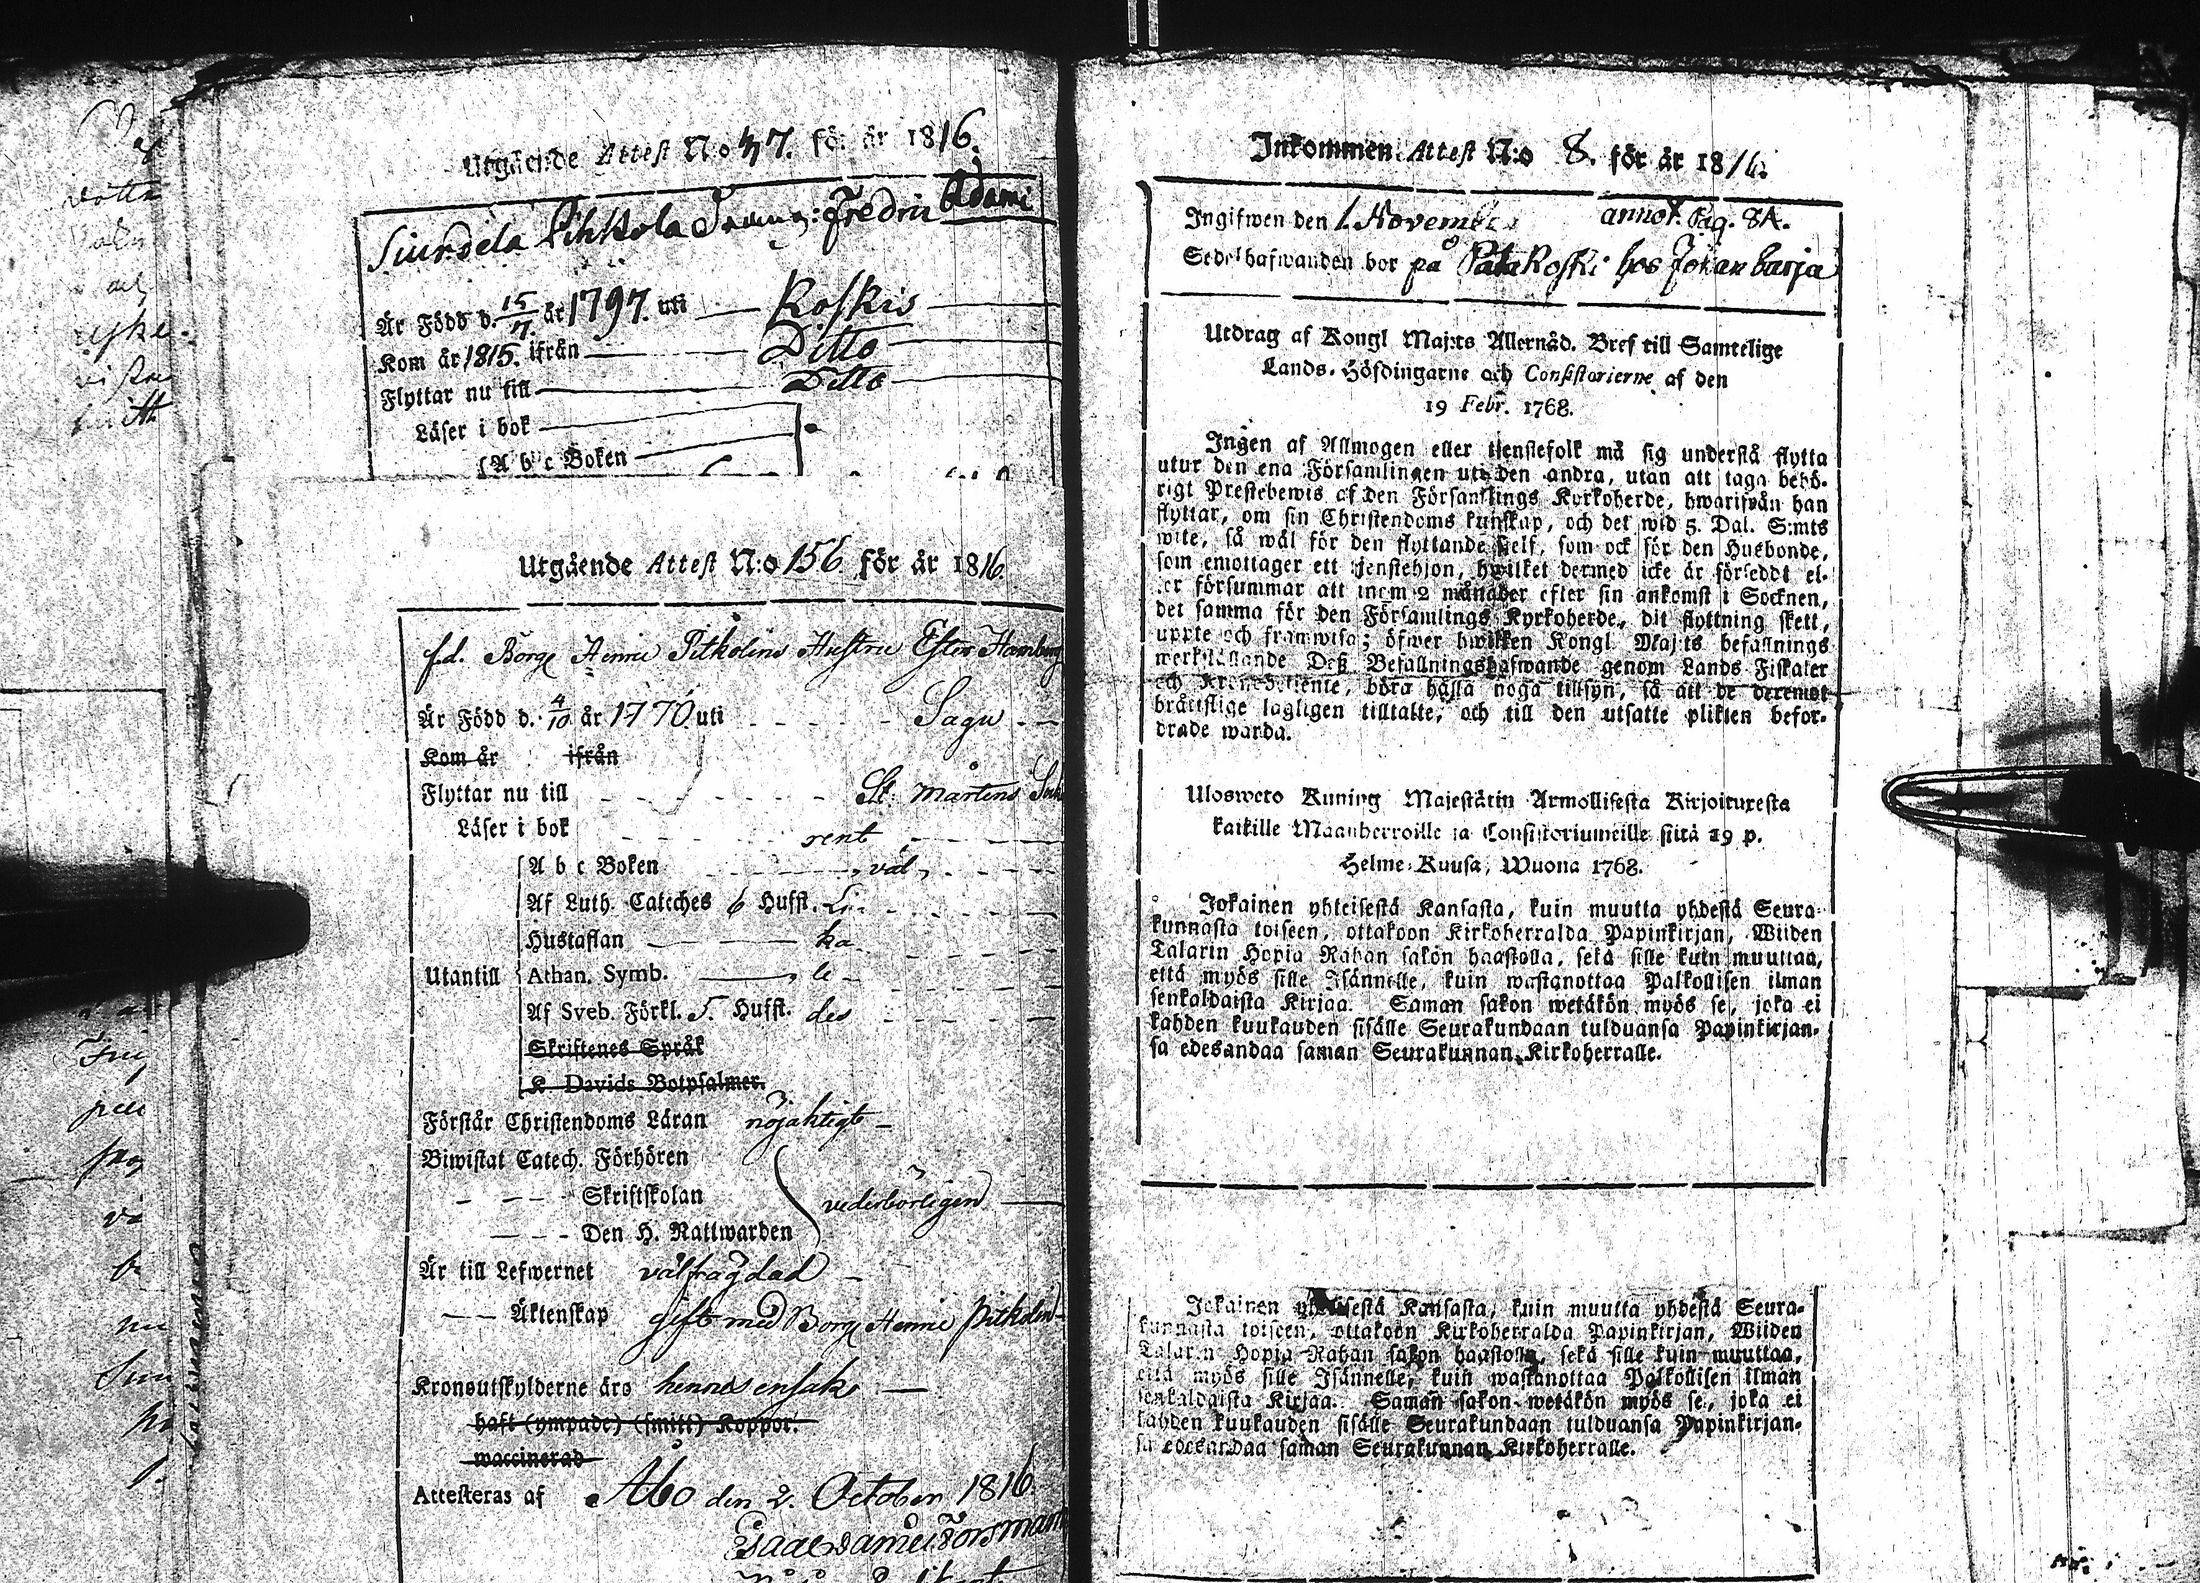 Utgående Attest N:o 47. för år 1816.
Pihkola Fredric Adami
Är Född d. 15/7. år 1797. uti Koskis
Kom år 1815. ifrån Ditto
Flyttar nu till Ditto
Läser i bok
A b c Boken
Utgående Attest N:o 156 för år 1816.
f.d. Borge Henric Pitkolins Hustru Ester Hamberg
Är Född d. 4/10 år 1770 uti Sagu
Kom år ifrån
Flyttar nu till St. Mårtens
Läser i bok rent
A b c Boken väl
Af Luth. Cateches 6 Hufst.
Hustaflan
Utantill Athan. Symb.
Af Sveb. Förkl. 5. Hufst.
Skriftenes Språk
K. Davids Botpsalmer.
Förstår Christendoms Läran nöjaktigt
Biwistat Catech. Förhören
Skriftskolan vederbörligen
Den H. Nattwarden
Är till Lefwernet välfrägdad
Äktenskap gift med Borge Henric Pitkolin
Kronoutskylderne äro hennes ensak
haft (ympade) (smitt) Koppor.
waccinerad
Attesteras af Åbo den 2. October 1816.
Isaac Daniel Forsman
Inkommen Attest N:o 8. för år 1816.
Ingifwen den 1. November annot. pag. 84.
Sedelhafwanden bor på Patakoski hos Johan Carja
Utdrag af Kongl Maj:ts Allernåd. Bref till Samtelige
Lands-Höfdingarne och Consistorierne af den
19 Febr. 1768.
Ingen af Allmogen eller tjenstefolk må sig understå flytta
utur den ena Församlingen uti den andra, utan att taga behö-
rigt Prestebewis af den Församlings Kyrkoherde, hwarifrån han
flyttar, om sin Christendoms kunskap, och det wid 5. Dal. S:mts
wite, så wäl för den flyttande sielf, som ock för den Husbonde,
som emottager ett tjenstehjon, hwilket dermed icke är försedt el-
ler försummar att inom 2 månader efter sin ankomst i Socknen,
det samma för den Församlings Kyrkoherde, dit flyttning skett,
uppte och framwisa; öfwer hwilken Kongl Maj:ts befallnings
werkställande Deß Befallningshafwande genom Lands Fiskaler
och Kronobetiente, böra hålla noga tillsyn, så att de deremot
bråttslige lagligen tilltalte, och till den utsatte plikten befor-
drade warda.
Ulosweto Kuning Majestätin Armollisesta Kirjoituxesta
kaikille Maanherroille ja Consistoriumeille siitä 19 p.
Helme-Kuusa, Wuona 1768.
Jokainen yhteisestä Kansasta, kuin muutta yhdestä Seura-
kunnasta toiseen, ottakoon Kirkoherralda Papinkirjan, Wiiden
Talarin Hopia Rahan sakon haastolla, sekä sille kuin muuttaa,
että myös sille Isännelle, kuin wastanottaa Palkollisen ilman
senkaldaista Kirjaa. Saman sakon wetäkön myös se, joka ei
kahden kuukauden sisälle Seurakundaan tulduansa Papinkirjan-
sa edesandaa saman Seurakunnan Kirkoherralle.
Jokainen yhteisestä Kansasta, kuin muutta yhdestä Seura-
kunnasta toiseen, ottakoon Kirkoherralda Papinkirjan, Wiiden
Talarin Hopia Rahan sakon haastolla, sekä sille kuin muuttaa,
että myös sille Isännelle, kuin wastanottaa Palkollisen ilman
senkaldaista Kirjaa. Saman sakon wetäkön myös se, joka ei
kahden kuukauden sisälle Seurakundaan tulduansa Papinkirjan-
sa edesandaa saman Seurakunnan Kirkoherralle.